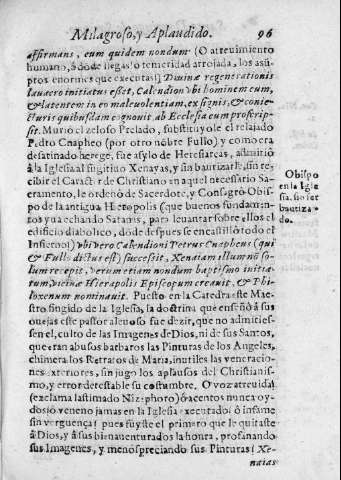 Milagroso, y Aplaudido. 96
affirmans, eum quidem nondum (O atreuimiento
humano, â donde llegas! o temeridad arrojada, los assũ
ptos enormes que executas!) Diuinæ regenerationis
lauacro initiatus esset, Calendion vbi hominem eum,
& latentem in eo maleuolentiam, ex signis, & conie-
cturis quibusdam cognouit ab Ecclesia eum proscrip-
sit. Murió el zeloso Prelado, substituyole el relajado
Pedro Cnapheo (por otro nõbre Fullo) y como era
desatinado herege, fue asylo de Heresiarcas, admitiò
â la Iglesia al fugitiuo Xenayas, y sin bautizarle, sin re-
cibir el Caracter de Christiano en aquel necessario Sa-
cramento, le ordenò de Sacerdote, y Consagrò Obis-
po de la antigua Hieropolis (que buenos fundamen-
tos yua echando Satanas, para leuantar sobre ellos el
edificio diabolico, dõde despues se encastillô todo el
Infierno) vbi vero Calendioni Petrus Cnapheus (qui
& Fullo dictus est) successit, Xenaiam illum nõ so-
lum recepit, verum etiam nondum baptismo initia-
tum, vicinæ Hierapolis Episcopum creauit, & Phi-
loxenum nominauit. Puesto en la Catedra este Mae-
stro fingido de la Iglesia, la doctrina que enseñô â sus
ouejas este pastor aleuoso fue dezir, que no admities-
sen el culto de las Imagenes de Dios, ni de sus Santos,
que eran abusos barbaros las Pinturas de los Angeles,
chimera los Retratos de Maria, inutiles las veneracio-
nes exteriores, sin jugo los aplausos del Christianis-
mo, y error detestable su costumbre. O voz atreuida!
(exclama lastimado Nizephoro) ô acentos nunca oy-
dos! o veneno jamas en la Iglesia executado! ô infame
sin verguença! pues fuyste el primero que le quitaste
â Dios, y â sus bienauenturados la honra, profanando
sus Imagenes, y menospreciando sus Pinturas! Xe-
naias
Obispo
en la Igle
sia, sin ser
bautiza-
do.